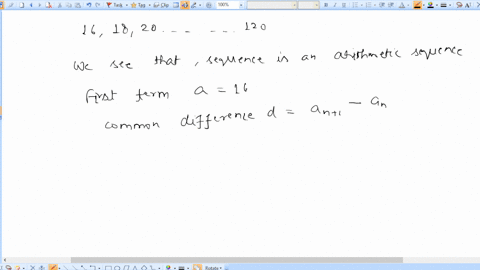 16, 18, 20 ... ... ... 120
We see that, sequence is an arithmetic sequence
First term a = 16
common difference d = aₙ₊₁ − aₙ